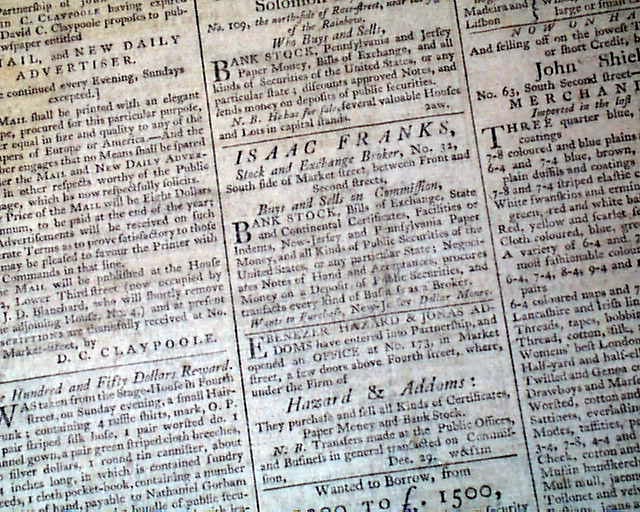 artnership of
in C. CLAYPOOLE having expired
David C. Claypoole proposes to pub-
wspaper entitled
AIL, and NEW DAILY
ADVERTISER.
continued every Evening, Sundays
excepted.]
MAIL shall be printed with an elegant
pe, procured for this particular purpose,
r equal in size and quality to any of the
apers of Europe or America.—And the
her engages that no Means shall be spared
er the MAIL and NEW DAILY ADVER-
in other respects worthy of the Public
age, which he now respectfully solicits.
Price of the MAIL will be Eight Dollars
nnum, to be paid at the end of the year;
Advertisements will be received on such
erate Terms as to prove satisfactory to those
may be pleased to favour the Printer with
Commands in that line.
MAIL will be published at the House
Lower Third street (now occupied by
J. D. Blanchard, who will shortly remove
adjoining House, No. 4,) and at present
SCRIPTIONS are thankfully received at No.
Market-street, by
D. C. CLAYPOOLE.
Hundred and Fifty Dollars Reward.
WAS taken from the Stage House in Fourth
street, on Sunday evening, a small Hair-
unk; containing 4 ruffle shirts, mark, O. P.
pair striped silk hose, 1 pair worsted do. 1
nnel gown, a pair green striped cloth breeches,
silver dollars, 1 round tin cannister, about
inches long, in which is contained sundry
eeds, 1 cloth pocket-book, containing a number
of hand, payable to Nathaniel Gorham
bundle of public secu-
Solomon
No. 109, the north-side of Race-street, near the
of the Rainbow,
Who Buys and Sells,
BANK STOCK, Pennsylvania and Jersey
Paper Money, Bills of Exchange, and all
kinds of Securities of the United States, or any
particular state; discounts approved Notes, and
lends money on deposits of public securities.
N. B. He has for sale, several valuable Houses
and Lots in capital stands. 2aw.
ISAAC FRANKS,
Stock and Exchange Broker, No. 32,
South side of Market street, between Front and
Second streets,
Buys and Sells on Commission,
BANK STOCK, Bills of Exchange, State
and Continental Certificates, Facilities or
Indents, New-Jersey and Pennsylvania Paper
Money, and all Kinds of Public Securities of the
United States, or any particular State; Negoci-
ates Notes of Hand and Acceptances, procures
Money on a Deposit of Public Securities, and
transacts every kind of Business as a Broker.
Wants to Purchase, New-Jersey Dollar Money
EBENEZER HAZARD & JONAS AD-
DOMS have entered into Partnership, and
opened an OFFICE at No. 173, in Market
street, a few doors above Fourth street, where,
under the Firm of
Hazard & Addoms:
They purchase and sell all Kinds of Certificates,
Paper Money and Bank Stock.
N. B. Transfers made at the Public Offices,
and Business in general transacted on Commis-
sion, Dec. 29. w&s1m
Wanted to Borrow, from
TO £. 1500,
security
Madeira and
Lisbon
large or small
NOW ON HA
And selling off on the lowest
or short Credit,
John Shie
No. 63, South Second street
MERCHAND
Imported in the last
THREE quarter blue,
coatings
7-8 coloured and blue plains
6-4 and 7-4 blue, brown,
plain duffils and coatings,
7-8 and 7-4 striped elastic
White swanskins and ermin
green, red and white
Red, yellow and scarlet
Cloth coloured, blue, gre
A variety of 6-4 and
most fashionable colou
6-4, 7-4, 8-4, 9-4 and
pairs
6-4 coloured naps and
Lancashire and Irish
Threads, tapes, bobbins
Thread, cotton, silk,
Womens' best London
Half-yard and half-
Twilled and Genoa
Drawboys and Mar
Worsted, cotton and
Sattinets, everlastin
Modes, taffities,
3-4, 7-8, 4-4 and
Check, cotton and
Muslin handkerch
Mull mull, jaconet
Toilonet and